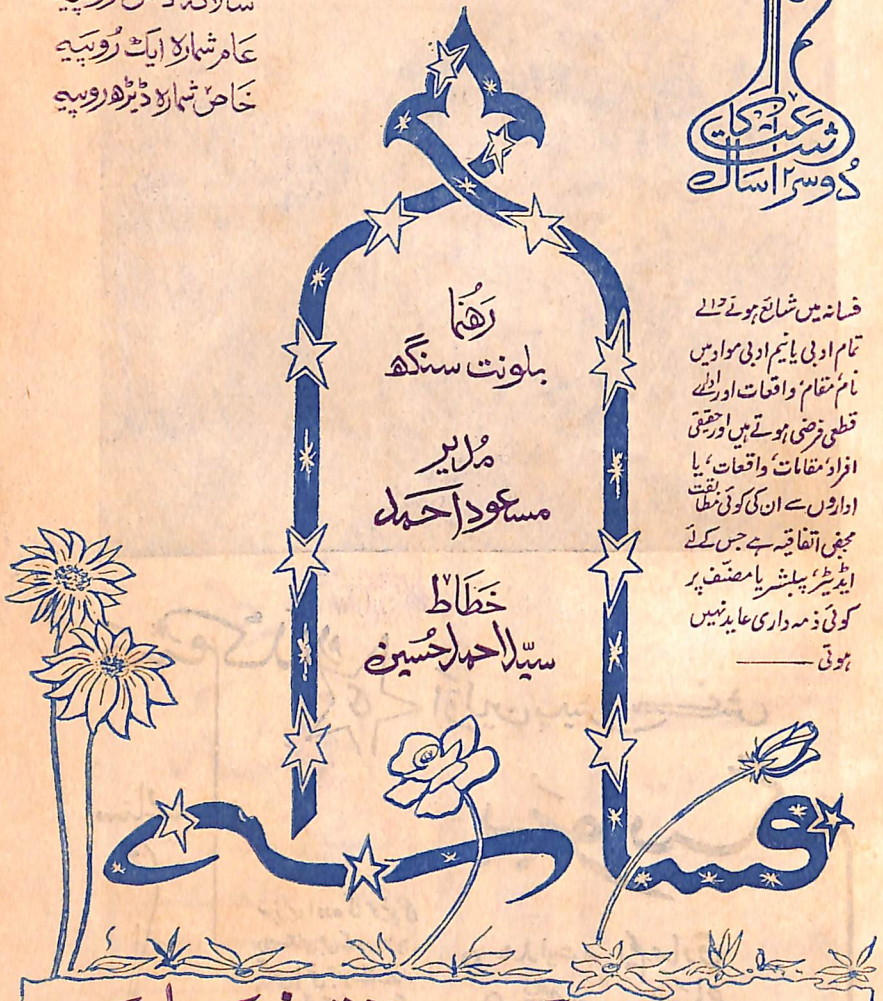 عام شمارہ ایک رُوپیہ
خاص شمارہ ڈیڑھ روپیہ
اشاعت کا
دُوسرا سال
رَھنُما
بلونت سنگھ
مُدیر
مسعود احمد
خطاط
سیّد احمد حُسین
فسانہ میں شائع ہونے والے
تمام ادبی یا نیم ادبی مواد میں
نام، مقام، واقعات اور ادارے
قطعی فرضی ہوتے ہیں اور حقیقی
افراد، مقامات، واقعات، یا
اداروں سے ان کی کوئی مطابقت
محض اتفاقیہ ہے جس کے لئے
ایڈیٹر، پبلشر یا مصنّف پر
کوئی ذمہ داری عاید نہیں
ہوتی
فسانہ